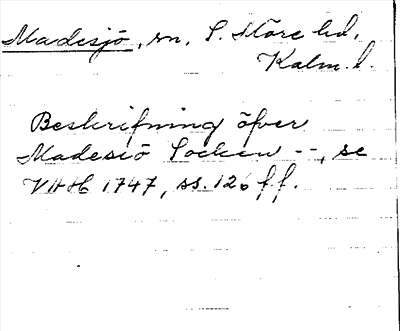 Madesjö, sn, S. Möre hd,
Kalm. l.
Beskrifning öfver
Madesiö Socken --, se
VHH 1747, ss. 126 ff.